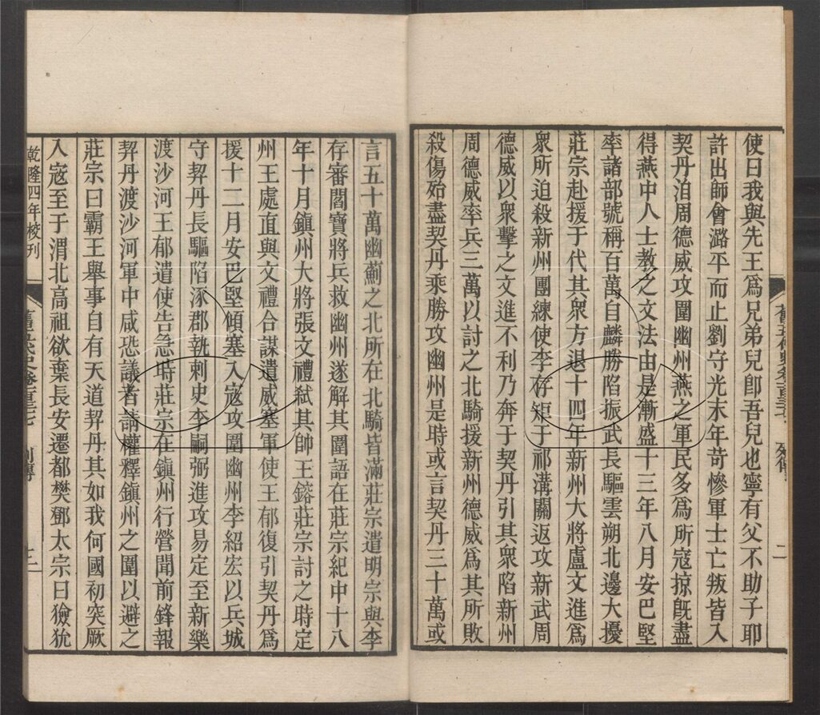 使曰我與先王爲兄弟兒卽吾兒也寧有父不助子耶
許出師會潞平而止劉守光末年苛慘軍士亡叛皆入
契丹洎周德威攻圍幽州燕之軍民多爲所寇掠旣盡
得燕中人士教之文法由是漸盛十三年八月安巴堅
率諸部號稱百萬自麟勝陷振武長驅雲朔北邊大擾
莊宗赴援于代其衆方退十四年新州大將盧文進爲
衆所迫殺新州團練使李存矩于祁溝關返攻新武周
德威以衆擊之文進不利乃奔于契丹引其衆陷新州
周德威率兵三萬以討之北騎援新州德威爲其所敗
殺傷殆盡契丹乘勝攻幽州是時或言契丹三十萬或
舊五代史卷一百三十七 列傳 二
言五十萬幽薊之北所在北騎皆滿莊宗遣明宗與李
存審閻寶將兵救幽州遂解其圍語在莊宗紀中十八
年十月鎮州大將張文禮弒其帥王鎔莊宗討之時定
州王處直與文禮合謀遣威塞軍使王郁復引契丹爲
援十二月安巴堅傾塞入寇攻圍幽州李紹宏以兵城
守契丹長驅陷涿郡執刺史李嗣弼進攻易定至新樂
渡沙河王郁遣使告急時莊宗在鎮州行營聞前鋒報
契丹渡沙河軍中咸恐議者請權釋鎮州之圍以避之
莊宗曰霸王舉事自有天道契丹其如我何國初突厥
入寇至于渭北高祖欲棄長安遷都樊鄧太宗曰獫狁
乾隆四年校刊
舊五代史卷一百三十七 列傳 三